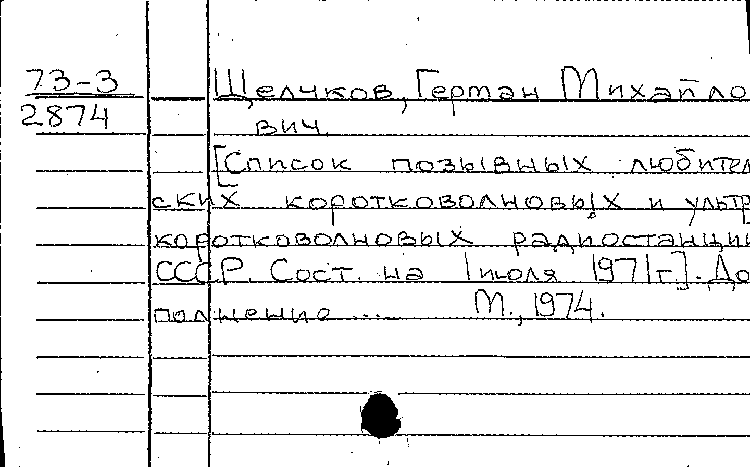 73-3
2874
Щелчков, Герман Михайло
вич.
[Список позывных любител
ских коротковолновых и ультр
коротковолновых радиостанции
СССР. Сост. на 1 июля 1971 г.]. До
полнение .... М., 1974.